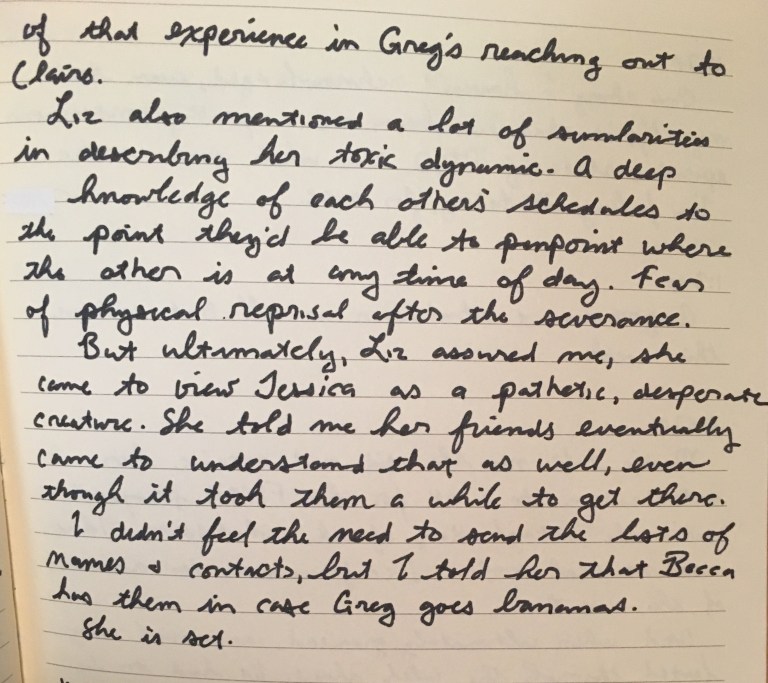 of that experience in Greg's reaching out to
Claire.
Liz also mentioned a lot of similarities
in describing her toxic dynamic. A deep
knowledge of each other's schedules to
the point they'd be able to pinpoint where
the other is at any time of day. Fear
of physical reprisal after the severance.
But ultimately, Liz assured me, she
came to view Jessica as a pathetic, desperate
creature. She told me her friends eventually
came to understand that as well, even
though it took them a while to get there.
I didn't feel the need to send the lists of
names & contacts, but I told her that Becca
has them in case Greg goes bananas.
She is set.